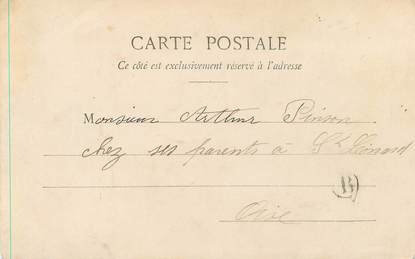 CARTE POSTALE
Ce côté est exclusivement réservé à l'adresse
Monsieur Arthur Pinson
chez ses parents à St Léonard
Oise
B